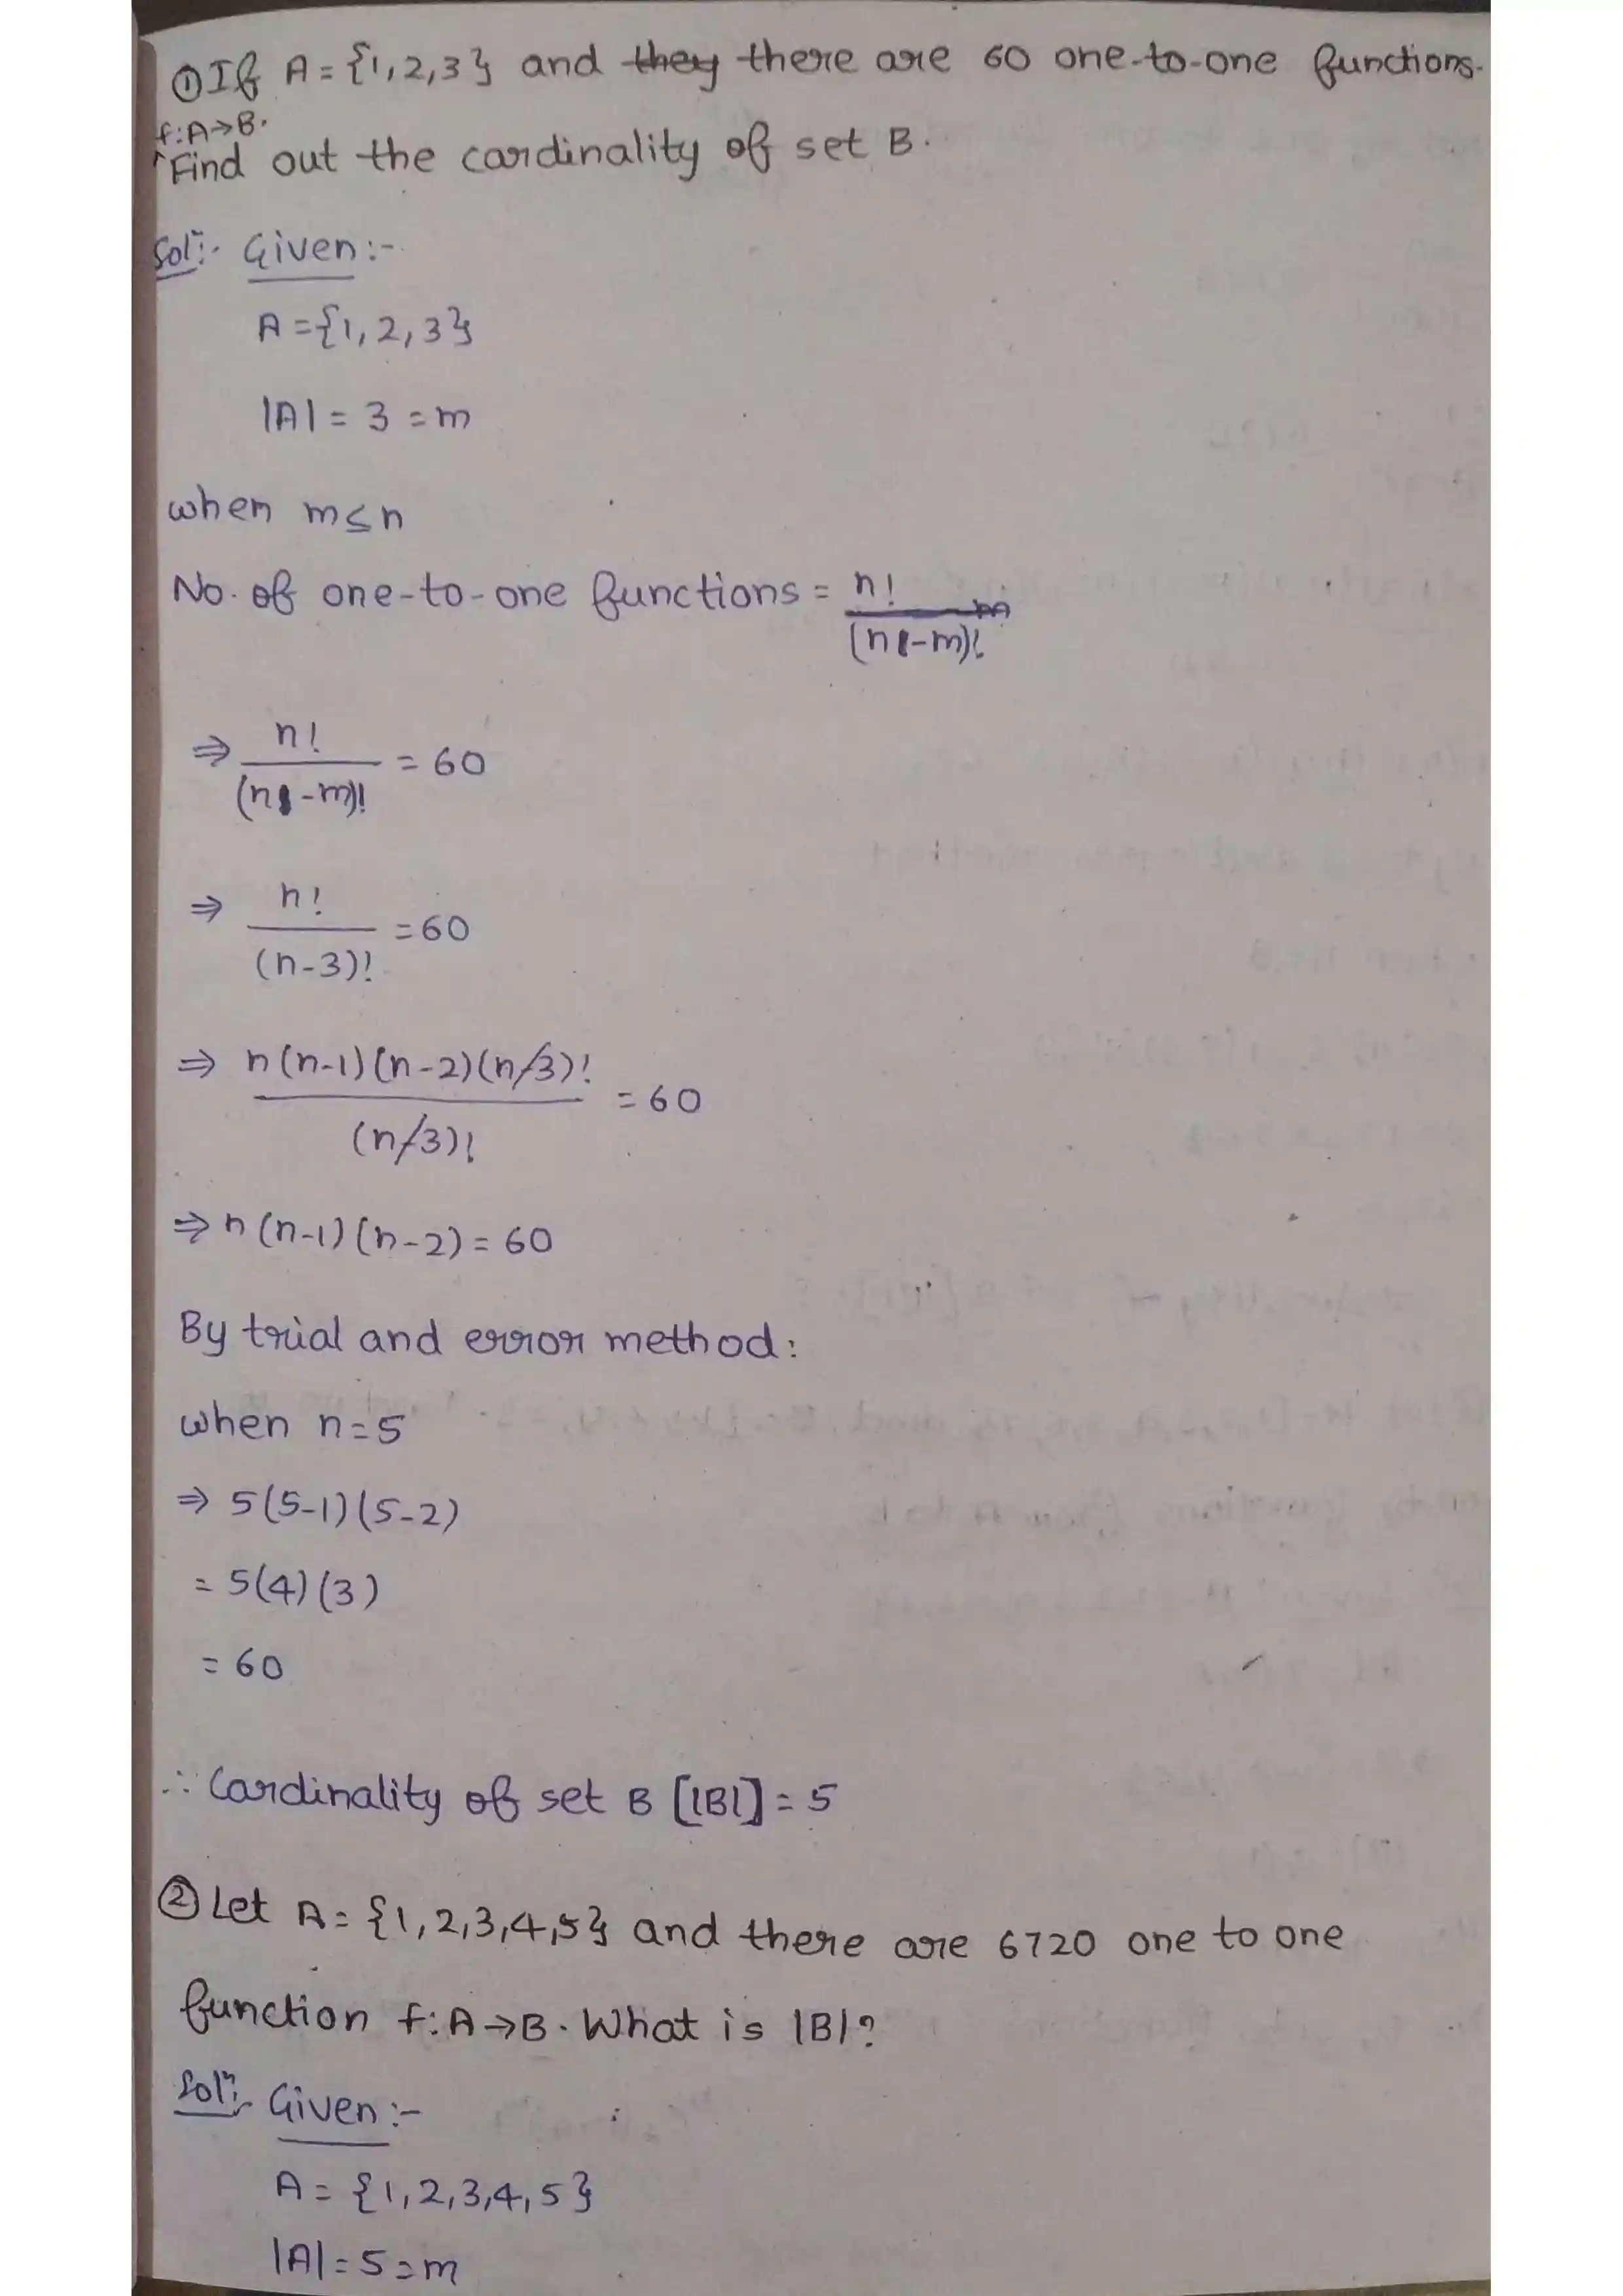 ① If A = {1, 2, 3} and they there are 60 one-to-one functions.
f:A→B.
Find out the cardinality of set B.
Solⁿ:- Given:-
A = {1, 2, 3}
|A| = 3 = m
when m ≤ n
No. of one-to-one functions = n! / (n-m)!
⇒ n! / (n-m)! = 60
⇒ n! / (n-3)! = 60
⇒ n(n-1)(n-2)(n-3)! / (n-3)! = 60
⇒ n(n-1)(n-2) = 60
By trial and error method:
when n=5
⇒ 5(5-1)(5-2)
= 5(4)(3)
= 60
∴ Cardinality of set B [|B|] = 5
② Let A = {1, 2, 3, 4, 5} and there are 6720 one to one
function f:A→B. What is |B|?
Solⁿ:- Given:-
A = {1, 2, 3, 4, 5}
|A| = 5 = m